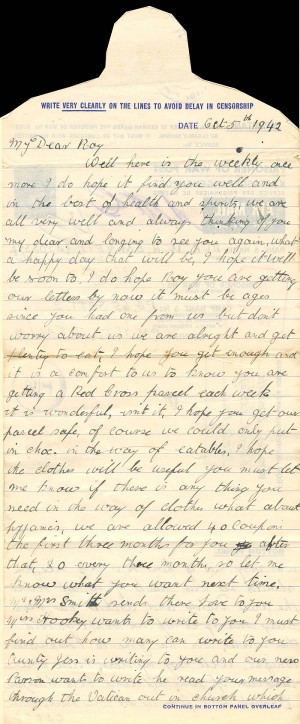 WRITE VERY CLEARLY ON THE LINES TO AVOID DELAY IN CENSORSHIP
DATE Oct 5th 1942
My Dear Roy
Well here is the weekly once
more I do hope it find you well and
in the best of health and spirits, we are
all very well and always thinking of you
my dear and longing to see you again, what
a happy day that will be, I hope it will
be soon to, I do hope Roy you are getting
our letters by now it must be ages
since you had one from us but don't
worry about us we are alright and get
plenty to eat, I hope you get enough and
it is a comfort to us to know you are
getting a Red Cross parcel each week
it is wonderful, isn't it, I hope you get our
parcel safe, of course we could only put
in choc. in the way of eatables, I hope
the clothes will be useful you must let
me know if there is any thing you
need in the way of clothes what about
pyjama's, we are allowed 40 coupons
the first three months for you after
that, 20 every three months, so let me
know what you want next time,
Mr & Mrs Smith sends there love to you
Mrs wants to write to you I must
find out how many can write to you
Aunty Jess is writing to you and our new
Parson want to write he read your message
through the Vatican out in church which
CONTINUE IN BOTTOM PANEL OVERLEAF